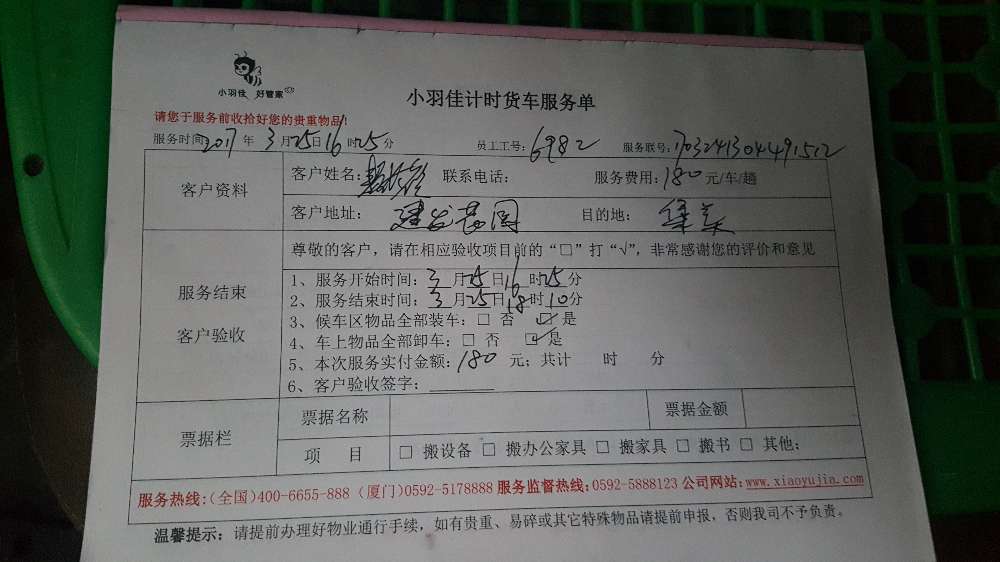 小羽佳 好管家
小羽佳计时货车服务单
请您于服务前收拾好您的贵重物品!
服务时间 2017 年 3 月 25 日 16 时 25 分 员工工号: 6982 服务联号: 1703241304491512
客户资料
客户姓名: 联系电话: 服务费用: 180 元/车/趟
客户地址: 建发花园 目的地:
服务结束
客户验收
尊敬的客户，请在相应验收项目前的“□”打“√”，非常感谢您的评价和意见
1、服务开始时间: 3 月 25 日 16 时 25 分
2、服务结束时间: 3 月 25 日 18 时 10 分
3、候车区物品全部装车: □ 否 ☑ 是
4、车上物品全部卸车: □ 否 ☑ 是
5、本次服务实付金额: 180 元; 共计 时 分
6、客户验收签字:
票据栏
票据名称 票据金额
项 目 □ 搬设备 □ 搬办公家具 □ 搬家具 □ 搬书 □ 其他:
服务热线:(全国)400-6655-888 (厦门)0592-5178888 服务监督热线:0592-5888123 公司网站:www.xiaoyujia.com
温馨提示: 请提前办理好物业通行手续，如有贵重、易碎或其它特殊物品请提前申报，否则我司不予负责。